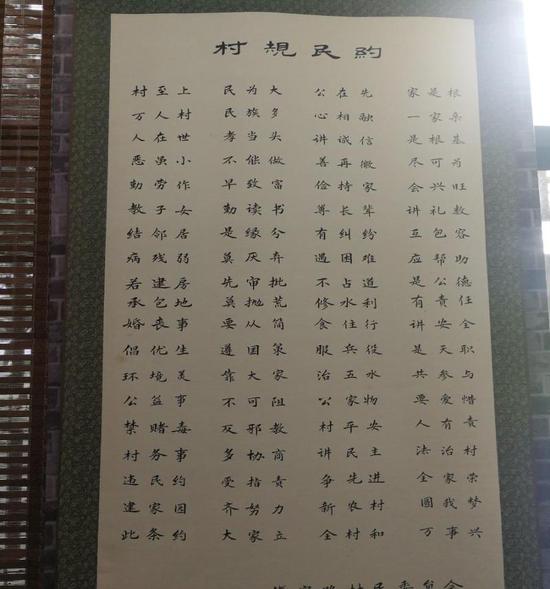 村規民約
村至上 民为大 公在先 家是根
万人村 民族多 心相融 一家亲
人在世 孝当头 讲诚信 是根基
恶虽小 不能做 善再微 尽可为
勤劳作 早致富 俭持家 会兴旺
教子女 勤读书 尊长辈 讲礼教
结邻居 是缘分 有纠纷 互包容
病残弱 莫厌弃 遇困难 应帮助
若建房 先审批 不占道 是公德
承包地 莫抛荒 修水利 有责任
婚丧事 要从简 食住行 讲安全
倡优生 遵国策 服兵役 是天职
环境美 靠大家 治五水 共参与
公益事 不可阻 公家物 要爱惜
禁赌毒 反邪教 村平安 人有责
村务事 多协商 讲民主 法治村
违民约 受指责 争先进 全家荣
建家园 齐努力 新农村 圆我梦
此条约 大家立 全村和 万事兴
村民委员会